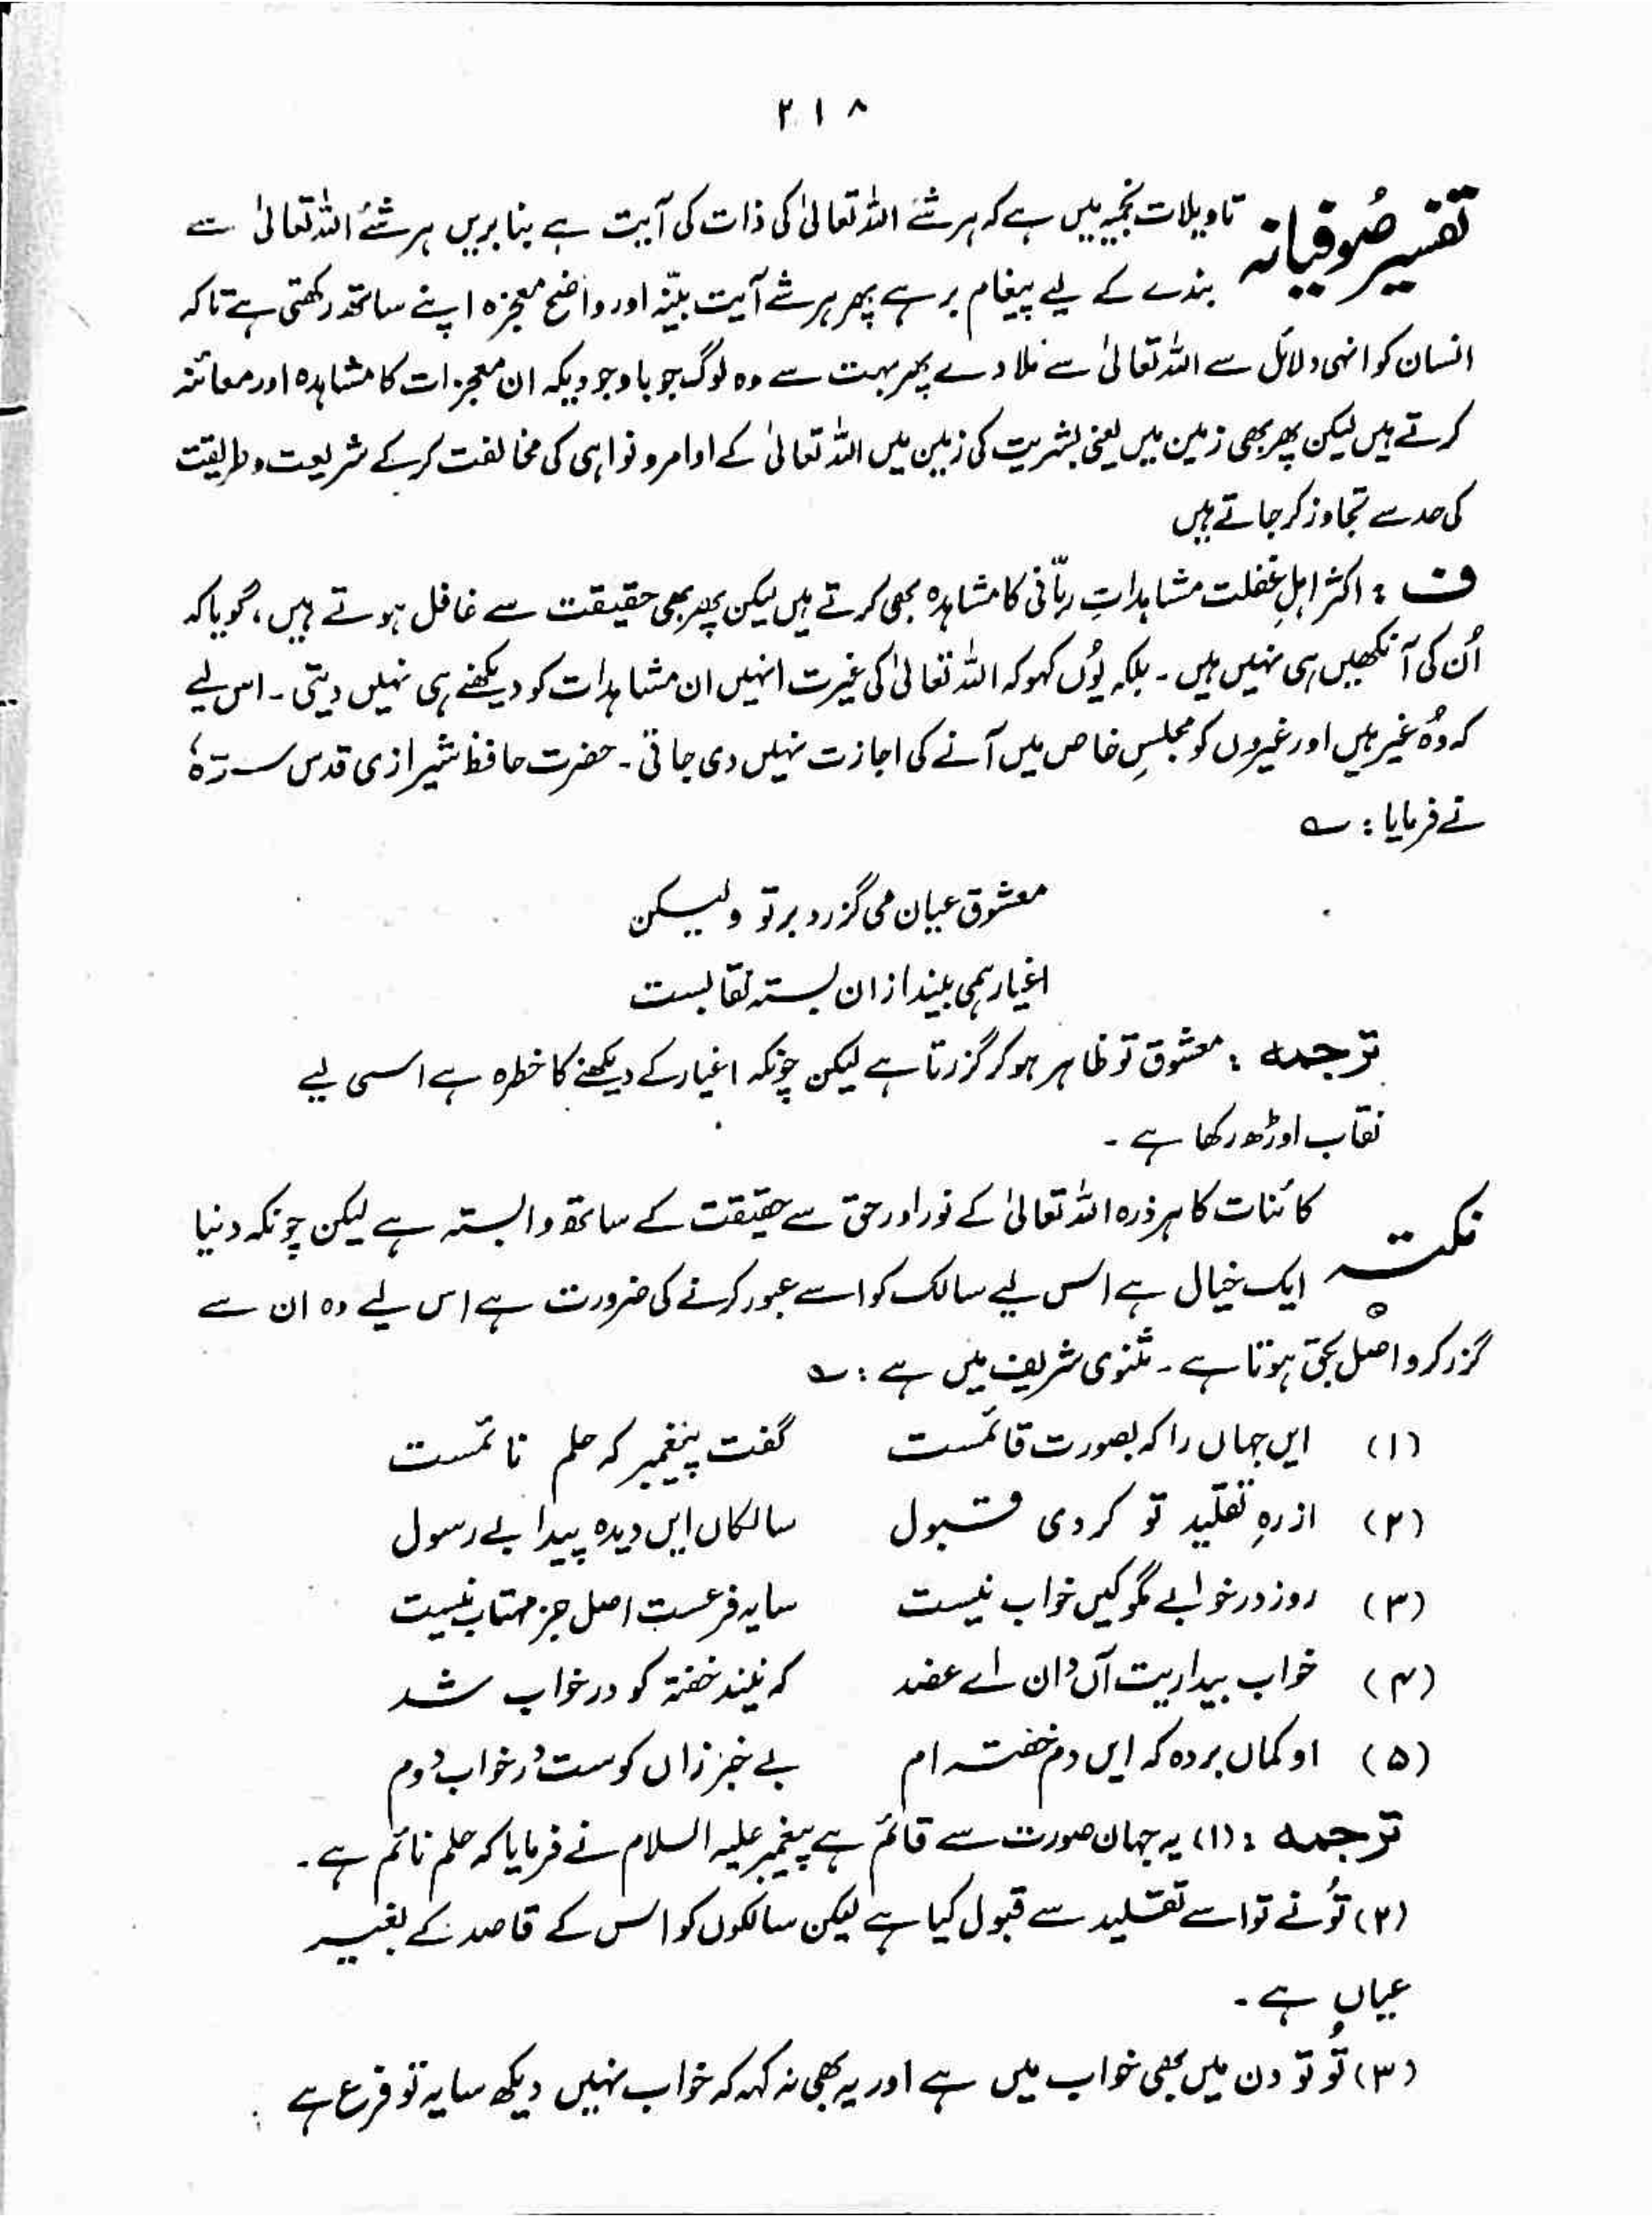 ۲۱۸
تفسیر صُوفیانہ تاویلات نجمیہ میں ہے کہ ہر شے اللہ تعالیٰ کی ذات کی آیت ہے بنا بریں ہر شے اللہ تعالیٰ سے
بندے کے لیے پیغام بر ہے پھر ہر شے آیت بیّنہ اور واضح معجزہ اپنے ساتھ رکھتی ہے تاکہ
انسان کو انہی دلائل سے اللہ تعالیٰ سے مِلا دے پھر بہت سے وہ لوگ جو باوجودیکہ ان معجزات کا مشاہدہ اور معائنہ
کرتے ہیں لیکن پھر بھی زمین میں یعنی بشریت کی زمین میں اللہ تعالیٰ کے اوامر و نواہی کی مخالفت کرکے شریعت و طریقت
کی حد سے تجاوز کر جاتے ہیں
ف : اکثر اہلِ غفلت مشاہداتِ ربّانی کا مشاہدہ بھی کرتے ہیں لیکن پھر بھی حقیقت سے غافل ہوتے ہیں، گویا کہ
اُن کی آنکھیں ہی نہیں ہیں ۔ بلکہ یُوں کہو کہ اللہ تعالیٰ کی غیرت انہیں ان مشاہدات کو دیکھنے ہی نہیں دیتی ۔ اس لیے
کہ وُہ غیر ہیں اور غیروں کو مجلسِ خاص میں آنے کی اجازت نہیں دی جاتی ۔ حضرت حافظ شیرازی قدس سرّہٗ
نے فرمایا : ؎
معشوق عیان می گزرد بر تو ولیکن
اغیار ہمی بیند ازان بستہ نقابست
ترجمہ : معشوق تو ظاہر ہو کر گزرتا ہے لیکن چونکہ اغیار کے دیکھنے کا خطرہ ہے اسی لیے
نقاب اوڑھ رکھا ہے ۔
نکتہ کائنات کا ہر ذرہ اللہ تعالیٰ کے نور اور حق سے حقیقت کے ساتھ وابستہ ہے لیکن چونکہ دنیا
ایک خیال ہے اس لیے سالک کو اسے عبور کرنے کی ضرورت ہے اس لیے وہ ان سے
گزر کر واصل بحق ہوتا ہے ۔ مثنوی شریف میں ہے : ؎
(۱) ایں جہاں را کہ بصورت قائمست گفت پیغمبر کہ حلم نائمست
(۲) از رہِ تقلید تو کردی قبول سالکاں ایں دیدہ پیدا بے رسول
(۳) روز در خوابے مگو کیں خواب نیست سایہ فرعست اصل جز مہتاب نیست
(۴) خواب بیداریت آں داں اے عضد کہ بیند خفتہ کو در خواب شد
(۵) او گماں بردہ کہ ایں دم خفتہ ام بے خبر زاں کوست در خواب دوم
ترجمہ : (۱) یہ جہان صورت سے قائم ہے پیغمبر علیہ السلام نے فرمایا کہ حلم نائم ہے ۔
(۲) تُو نے تو اسے تقلید سے قبول کیا ہے لیکن سالکوں کو اس کے قاصد کے بغیر
عیاں ہے ۔
(۳) تُو تو دن میں بھی خواب میں ہے اور یہ بھی نہ کہہ کہ خواب نہیں دیکھ سایہ تو فرع ہے